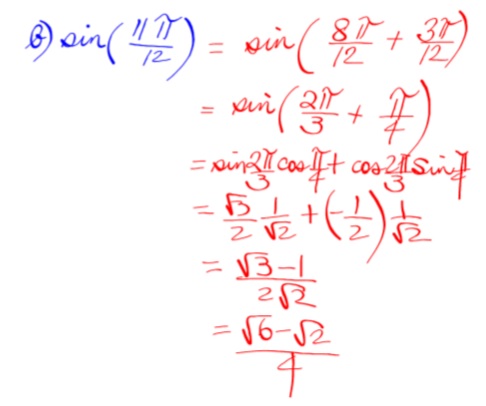 b) sin(11π/12) = sin(8π/12 + 3π/12)
= sin(2π/3 + π/4)
= sin 2π/3 cos π/4 + cos 2π/3 sin π/4
= √3/2 1/√2 + (-1/2) 1/√2
= √3-1/2√2
= √6-√2/4